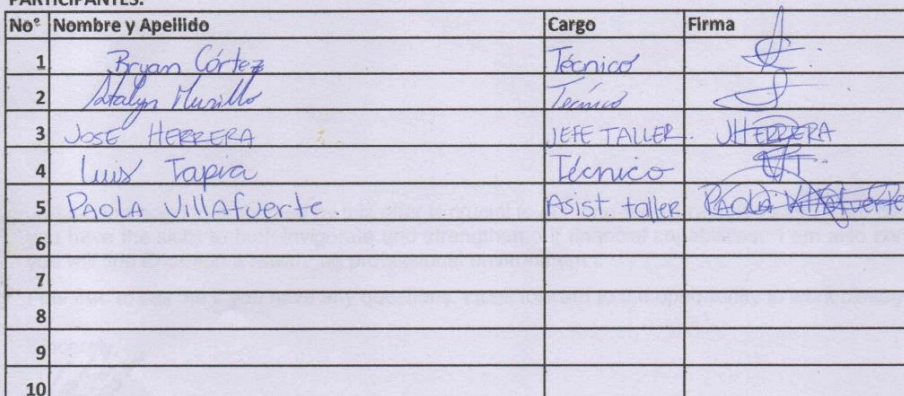 PARTICIPANTES:
No° Nombre y Apellido Cargo Firma
1 Bryan Córtez Técnico
2 Murillo Técnico
3 JOSE HERRERA JEFE TALLER JHERRERA
4 Luis Tapia Técnico
5 PAOLA VillAfuerte Asist taller PAOLA VillAfuerte
6
7
8
9
10